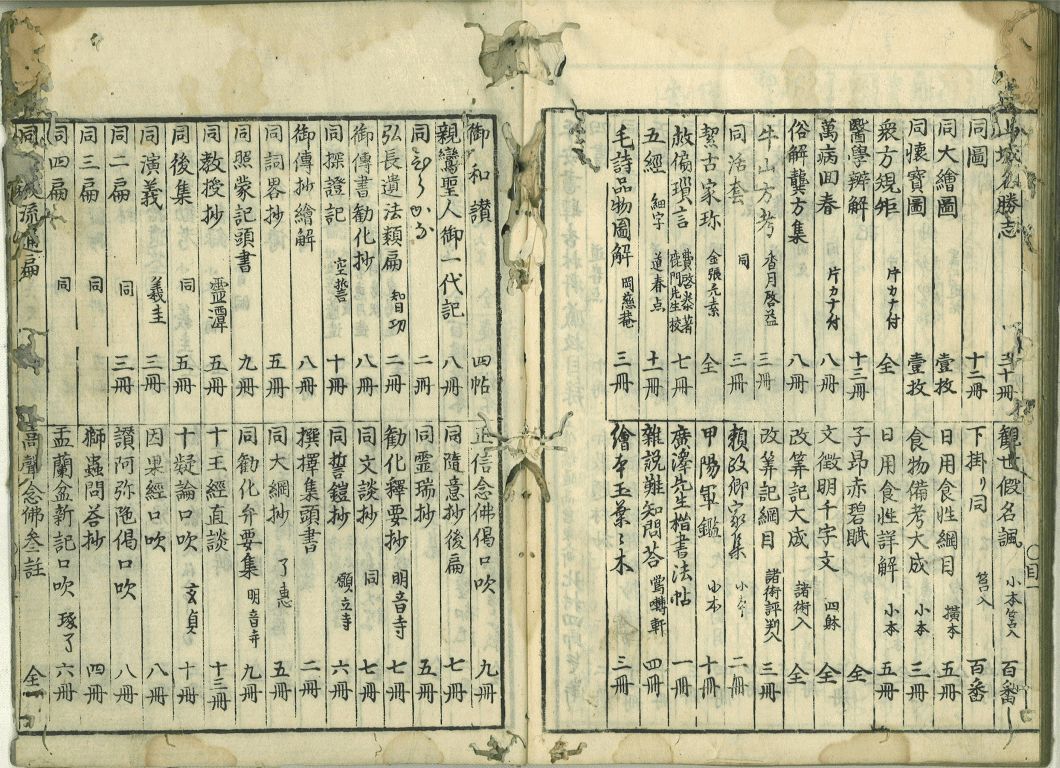 山城名勝志 二十冊
同圖 十二冊
同大繪圖 壹枚
同懷寶圖 壹枚
衆方規矩 片カナ付 全
醫學辨解 十三冊
萬病回春 片カナ付 八冊
俗解龔方集 八冊
牛山方考 香月啓益 三冊
同活套 同 三冊
潔古家珍 金張元素 全
赦儨瑣言 費啓泰著 鹿門先生校 七冊
五經 細字 道春点 十一冊
毛詩品物圖解 岡慈菴 三冊
觀世假名諷 小本筥入 百番
下掛り同 筥入 百番
日用食性綱目 横本 五冊
食物備考大成 小本 三冊
日用食性詳解 小本 五冊
子昂赤碧賦 全
文徴明千字文 四躰 全
改筭記大成 諸術入 全
改筭記綱目 諸術評判入 三冊
頼政卿家集 小本 二冊
甲陽軍鑑 小本 十冊
廣澤先生楷書法帖 一冊
雜説難知問荅 鶯囀軒 四冊
繪本玉藻 三冊
目一
御和讃 四帖
親鸞聖人御一代記 八冊
同ひらかな 二冊
弘長遺法類扁 智功 二冊
御傳書勸化抄 八冊
同探證記 空誓 十冊
御傳抄繪解 八冊
同詞畧抄 五冊
同照蒙記頭書 九冊
同教授抄 靈潭 五冊
同後集 同 五冊
同演義 義圭 三冊
同二扁 同 三冊
同三扁 同
同四扁 同
同 疏通扁
正信念佛偈口吹 九冊
同隨意抄後扁 七冊
同霊瑞抄 五冊
勸化釋要抄 明音寺 七冊
同文談抄 同 七冊
同誓鎧抄 願立寺 六冊
撰擇集頭書 二冊
同大綱抄 了惠 五冊
同勸化弁要集 明音寺 九冊
十王經直談 十三冊
十疑論口吹 玄貞 十冊
因果經口吹 八冊
讃阿弥陁偈口吹 八冊
獅蟲問荅抄 四冊
盂蘭盆新記口吹 琢了 六冊
高聲念佛叄註 全